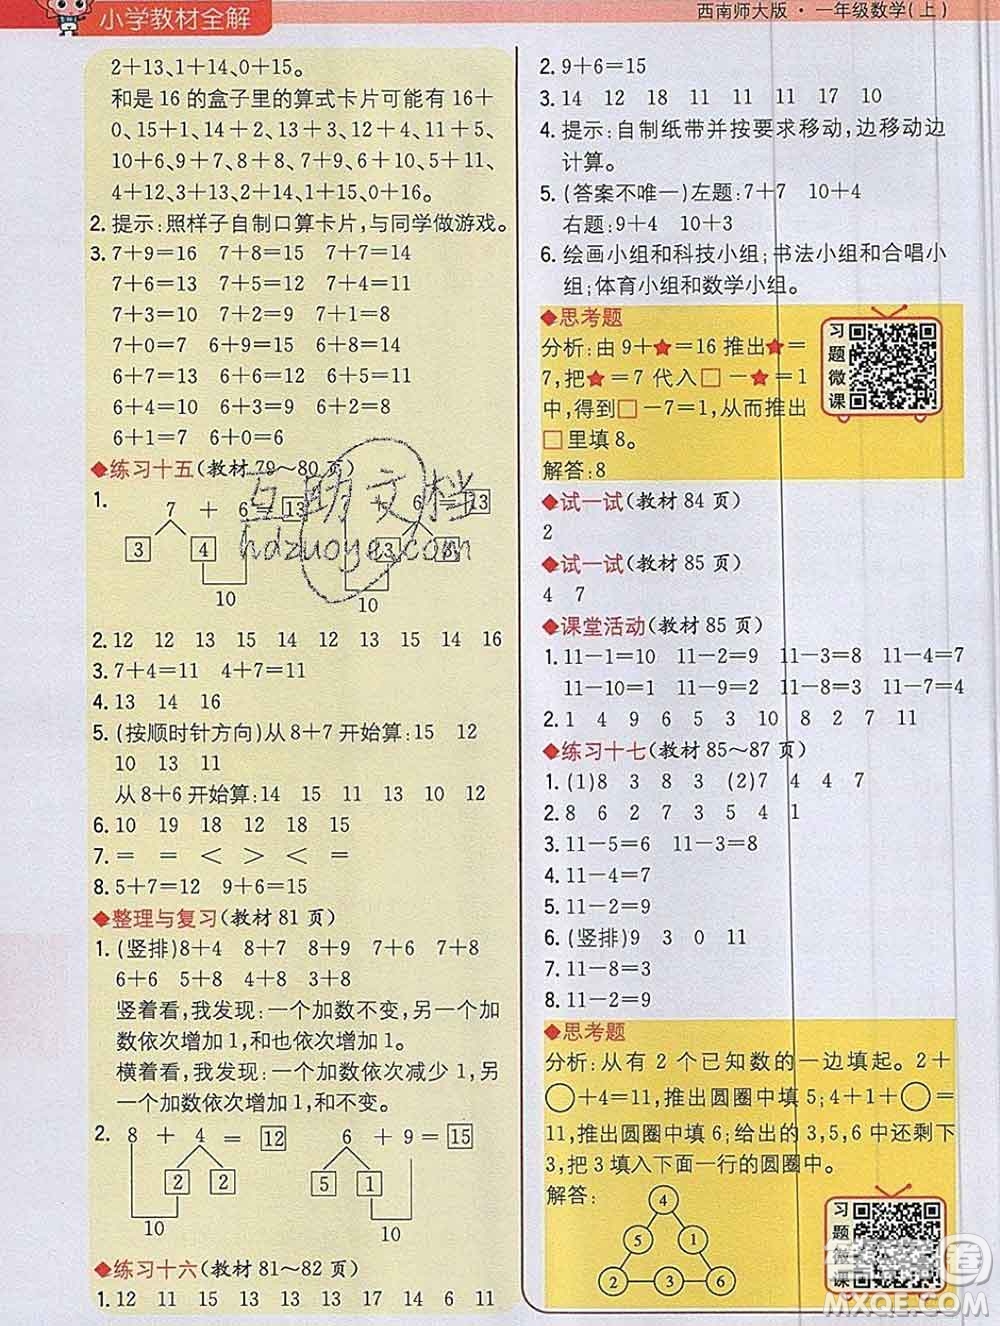 小学教材全解
西南师大版·一年级数学(上)
2+13、1+14、0+15。
和是 16 的盒子里的算式卡片可能有 16+
0、15+1、14+2、13+3、12+4、11+5、
10+6、9+7、8+8、7+9、6+10、5+11、
4+12、3+13、2+14、1+15、0+16。
2. 提示:照样子自制口算卡片,与同学做游戏。
3. 7+9=16 7+8=15 7+7=14
7+6=13 7+5=12 7+4=11
7+3=10 7+2=9 7+1=8
7+0=7 6+9=15 6+8=14
6+7=13 6+6=12 6+5=11
6+4=10 6+3=9 6+2=8
6+1=7 6+0=6
◆练习十五(教材 79~80 页)
1. 7 + 6 = 13
3 4
10
6 = 13
3
10
2. 12 12 13 15 14 12 13 15 14 16
3. 7+4=11 4+7=11
4. 13 14 16
5. (按顺时针方向)从 8+7 开始算:15 12
10 13 11
从 8+6 开始算:14 15 11 13 10 12
6. 10 19 18 12 18 15
7. = = < > < =
8. 5+7=12 9+6=15
◆整理与复习(教材 81 页)
1. (竖排)8+4 8+7 8+9 7+6 7+8
6+6 5+8 4+8 3+8
竖着看,我发现:一个加数不变,另一个加
数依次增加 1,和也依次增加 1。
横着看,我发现:一个加数依次减少 1,另
一个加数依次增加 1,和不变。
2. 8 + 4 = 12
2 2
10
6 + 9 = 15
5 1
10
◆练习十六(教材 81~82 页)
1. 12 11 15 13 13 14 6 11
2. 9+6=15
3. 14 12 18 11 11 11 17 10
4. 提示:自制纸带并按要求移动,边移动边
计算。
5. (答案不唯一)左题:7+7 10+4
右题:9+4 10+3
6. 绘画小组和科技小组;书法小组和合唱小
组;体育小组和数学小组。
◆思考题
分析:由 9+★=16 推出★=
7,把★=7 代入□-★=1
中,得到□-7=1,从而推出
□里填 8。
解答:8
习题微课
◆试一试(教材 84 页)
2
◆试一试(教材 85 页)
4 7
◆课堂活动(教材 85 页)
1. 11-1=10 11-2=9 11-3=8 11-4=7
11-10=1 11-9=2 11-8=3 11-7=4
2. 1 4 9 6 5 3 10 8 2 7 11
◆练习十七(教材 85~87 页)
1. (1)8 3 8 3 (2)7 4 4 7
2. 8 6 2 7 3 10 4 9 5 1
3. 11-5=6 11-3=8
4. 11-4=7
5. 11-2=9
6. (竖排)9 3 0 11
7. 11-8=3
8. 11-2=9
◆思考题
分析:从有 2 个已知数的一边填起。2+
○+4=11,推出圆圈中填 5;4+1+○=
11,推出圆圈中填 6;给出的 3,5,6 中还剩下
3,把 3 填入下面一行的圆圈中。
解答:
4
5 1
2 3 6
习题微课
互助文档
hdzuoye.com
MXQE.COM